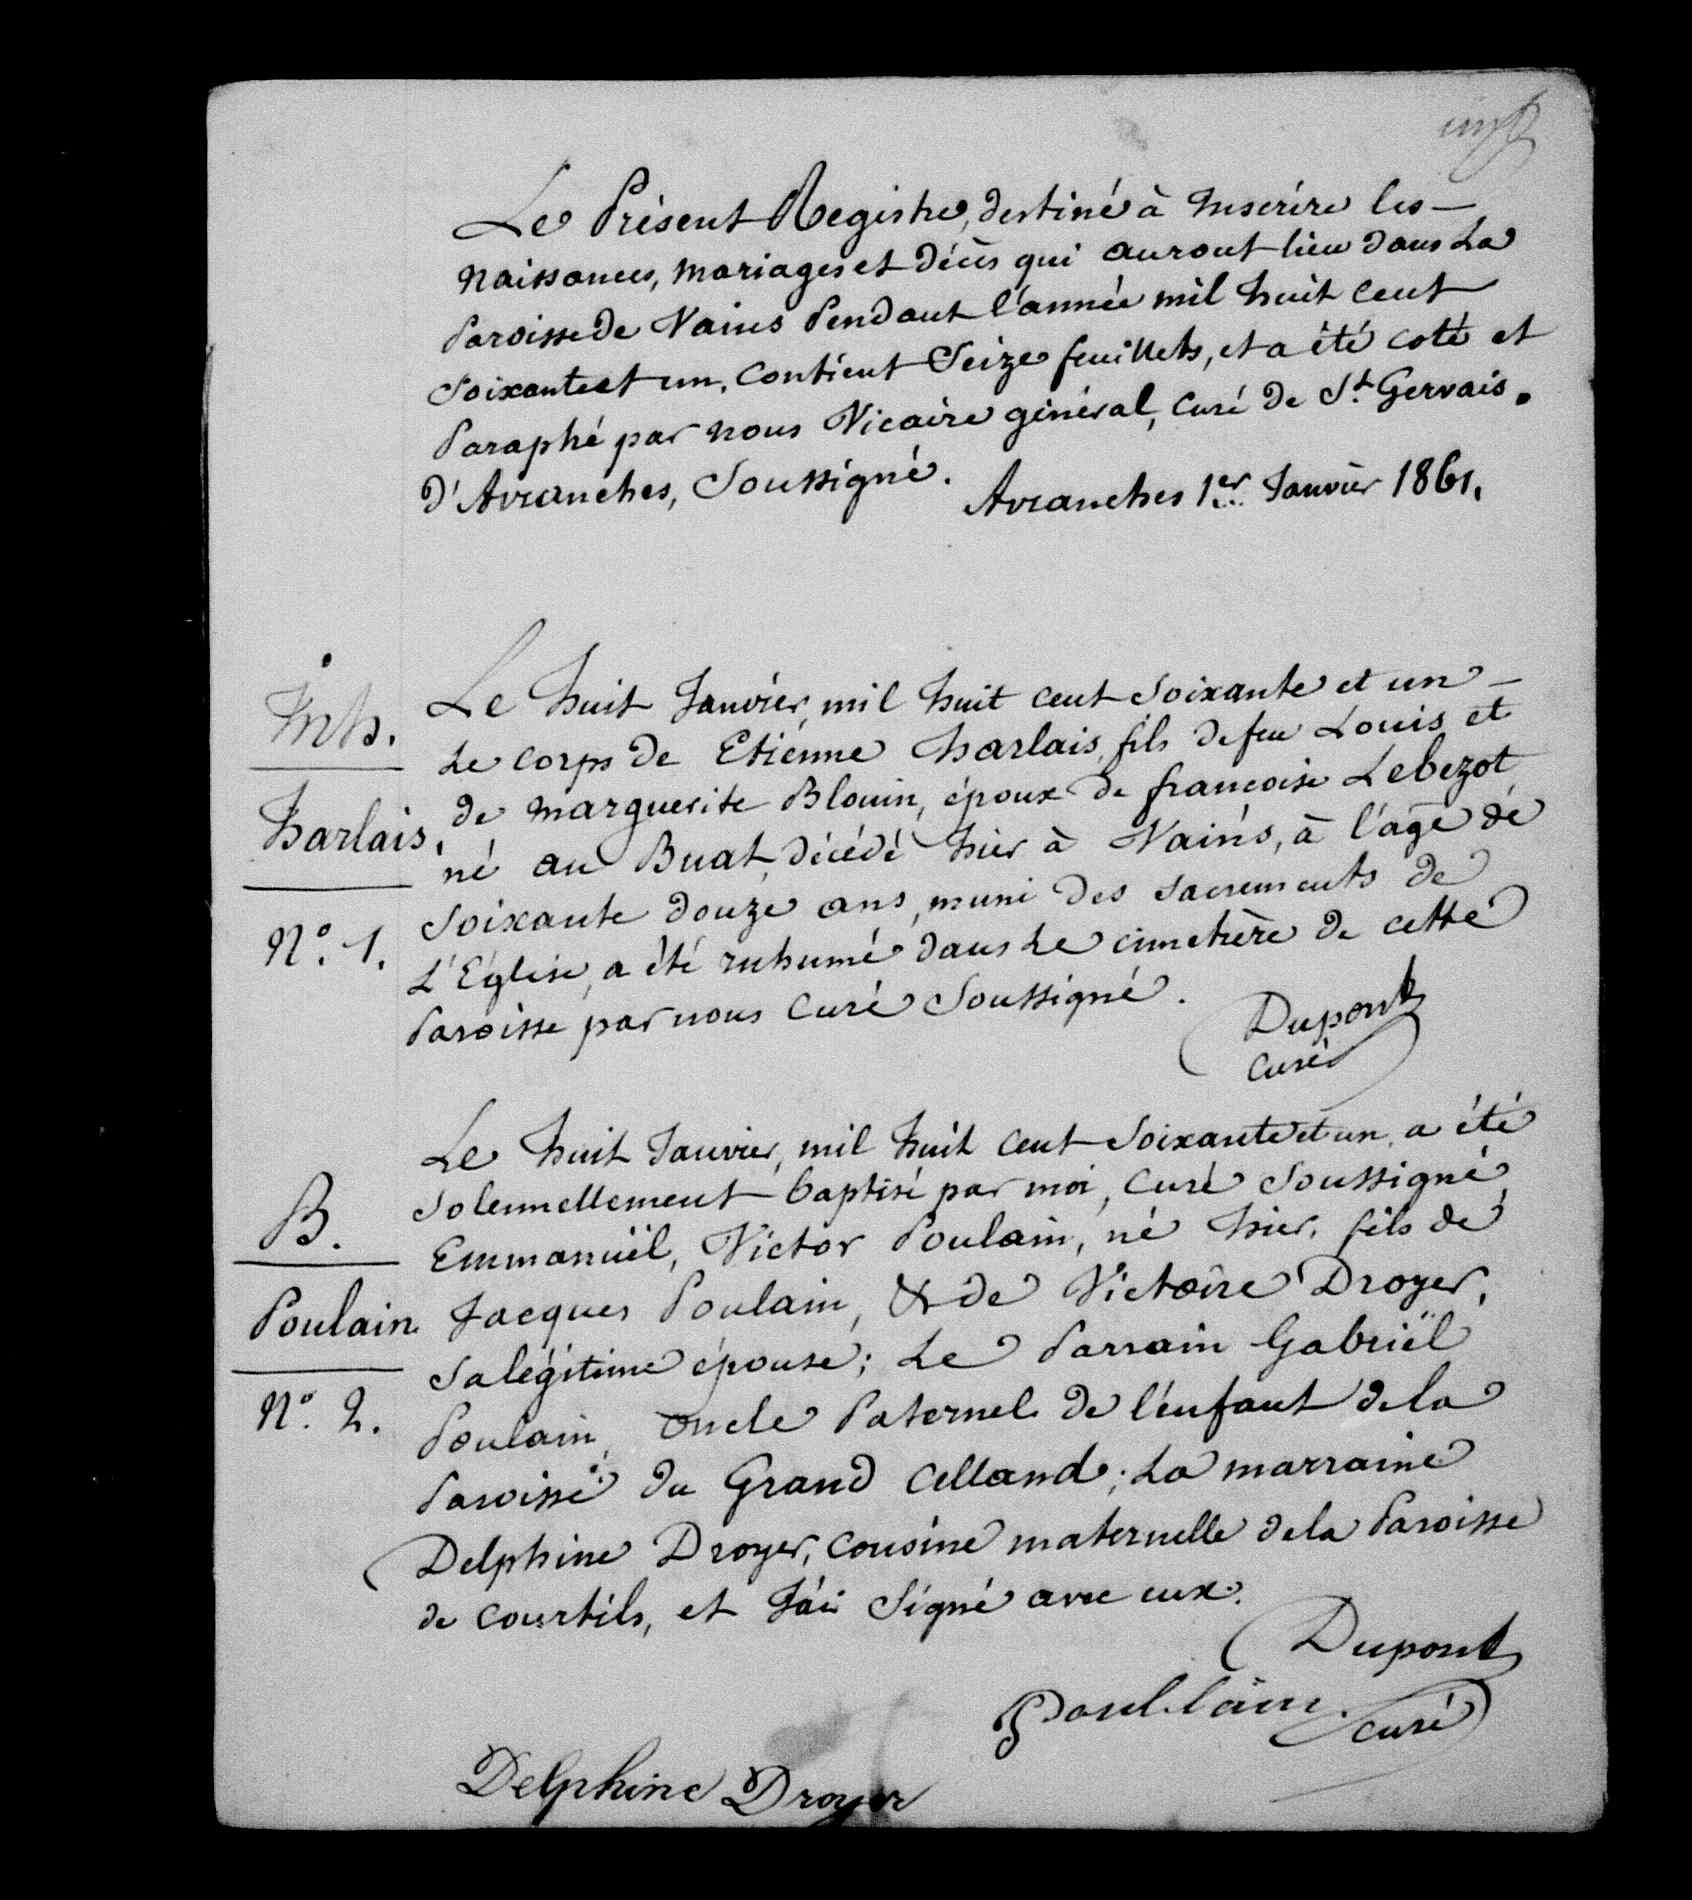 Le Présent Registre, destiné à Inscrire les -
Naissances, mariages et décès qui auront lieu dans La
Paroisse de Vains Pendant l'année mil huit cent
Soixante et un, contient Seize feuillets, et a été coté et
Paraphé par nous Vicaire général, curé de St Gervais.
D'Avranches, Soussigné.
Avranches 1er Janvier 1861.
Inh.
Harlais.
No. 1.
Le huit Janvier, mil huit cent Soixante et un -
Le corps de Etienne harlais, fils de feu Louis et
de marguerite Blouin, époux de françoise Lebezot,
né au Buat, décédé hier à Vains, à l'âge de
Soixante douze ans, muni des sacrements de
L'Eglise, a été inhumé dans Le cimetière de cette
Paroisse par nous Curé Soussigné.
Dupont
Curé
B.
Poulain
No. 2.
Le huit Janvier, mil huit cent Soixante et un, a été
Solennellement baptisé par moi, Curé Soussigné,
Emmanuël, Victor Poulain, né hier, fils de
Jacques Poulain, & de Victoire Droyer,
Sa légitime épouse; Le Parrain Gabriël
Poulain, oncle Paternel de l'enfant de la
Paroisse du Grand Celland; La marraine
Delphine Droyer, cousine maternelle de la Paroisse
de Courtils, et J'ai Signé avec eux.
Dupont
Poullain.
curé
Delphine Droyer